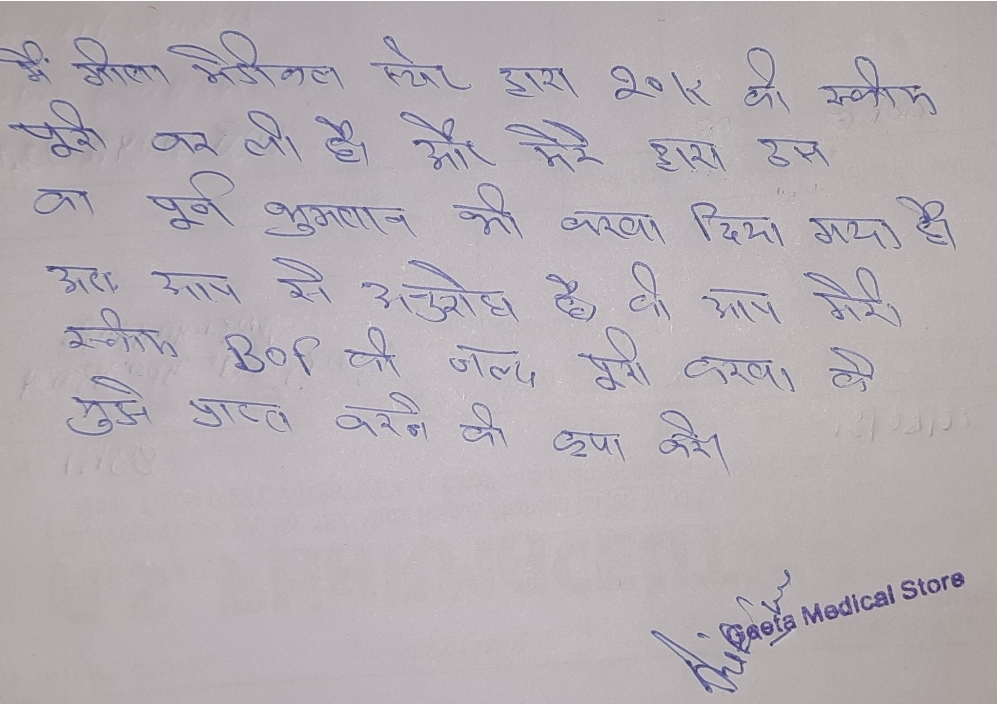 मैं गीता मैडीकल स्टोर द्वारा २०१५ की स्कीम
पूरी कर ली है। और मेरे द्वारा उस
का पूर्न भुगतान भी करवा दिया गया है।
अतः आप से अनुरोध है की आप मेरी
स्कीम को जल्द पूरी करवा के
मुझे प्राप्त करने की कृपा करे।
Geeta Medical Store